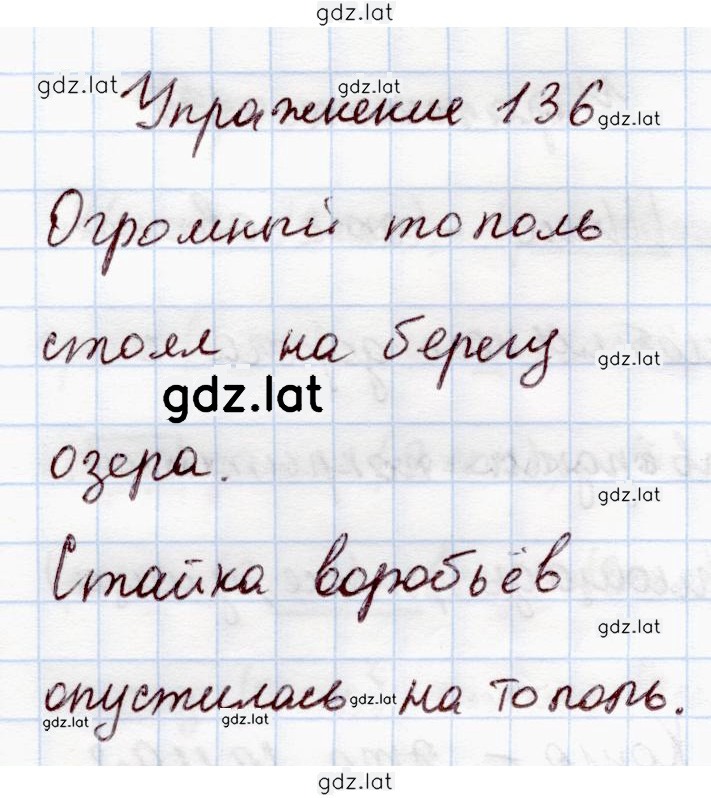 gdz.lat
gdz.lat gdz.lat
Упражнение 136 gdz.lat
Огромный тополь
стоял на берегу gdz.lat
gdz.lat
озера.
gdz.lat
Стайка воробьёв
gdz.lat
опустилась gdz.lat на тополь.
gdz.lat gdz.lat
gdz.lat